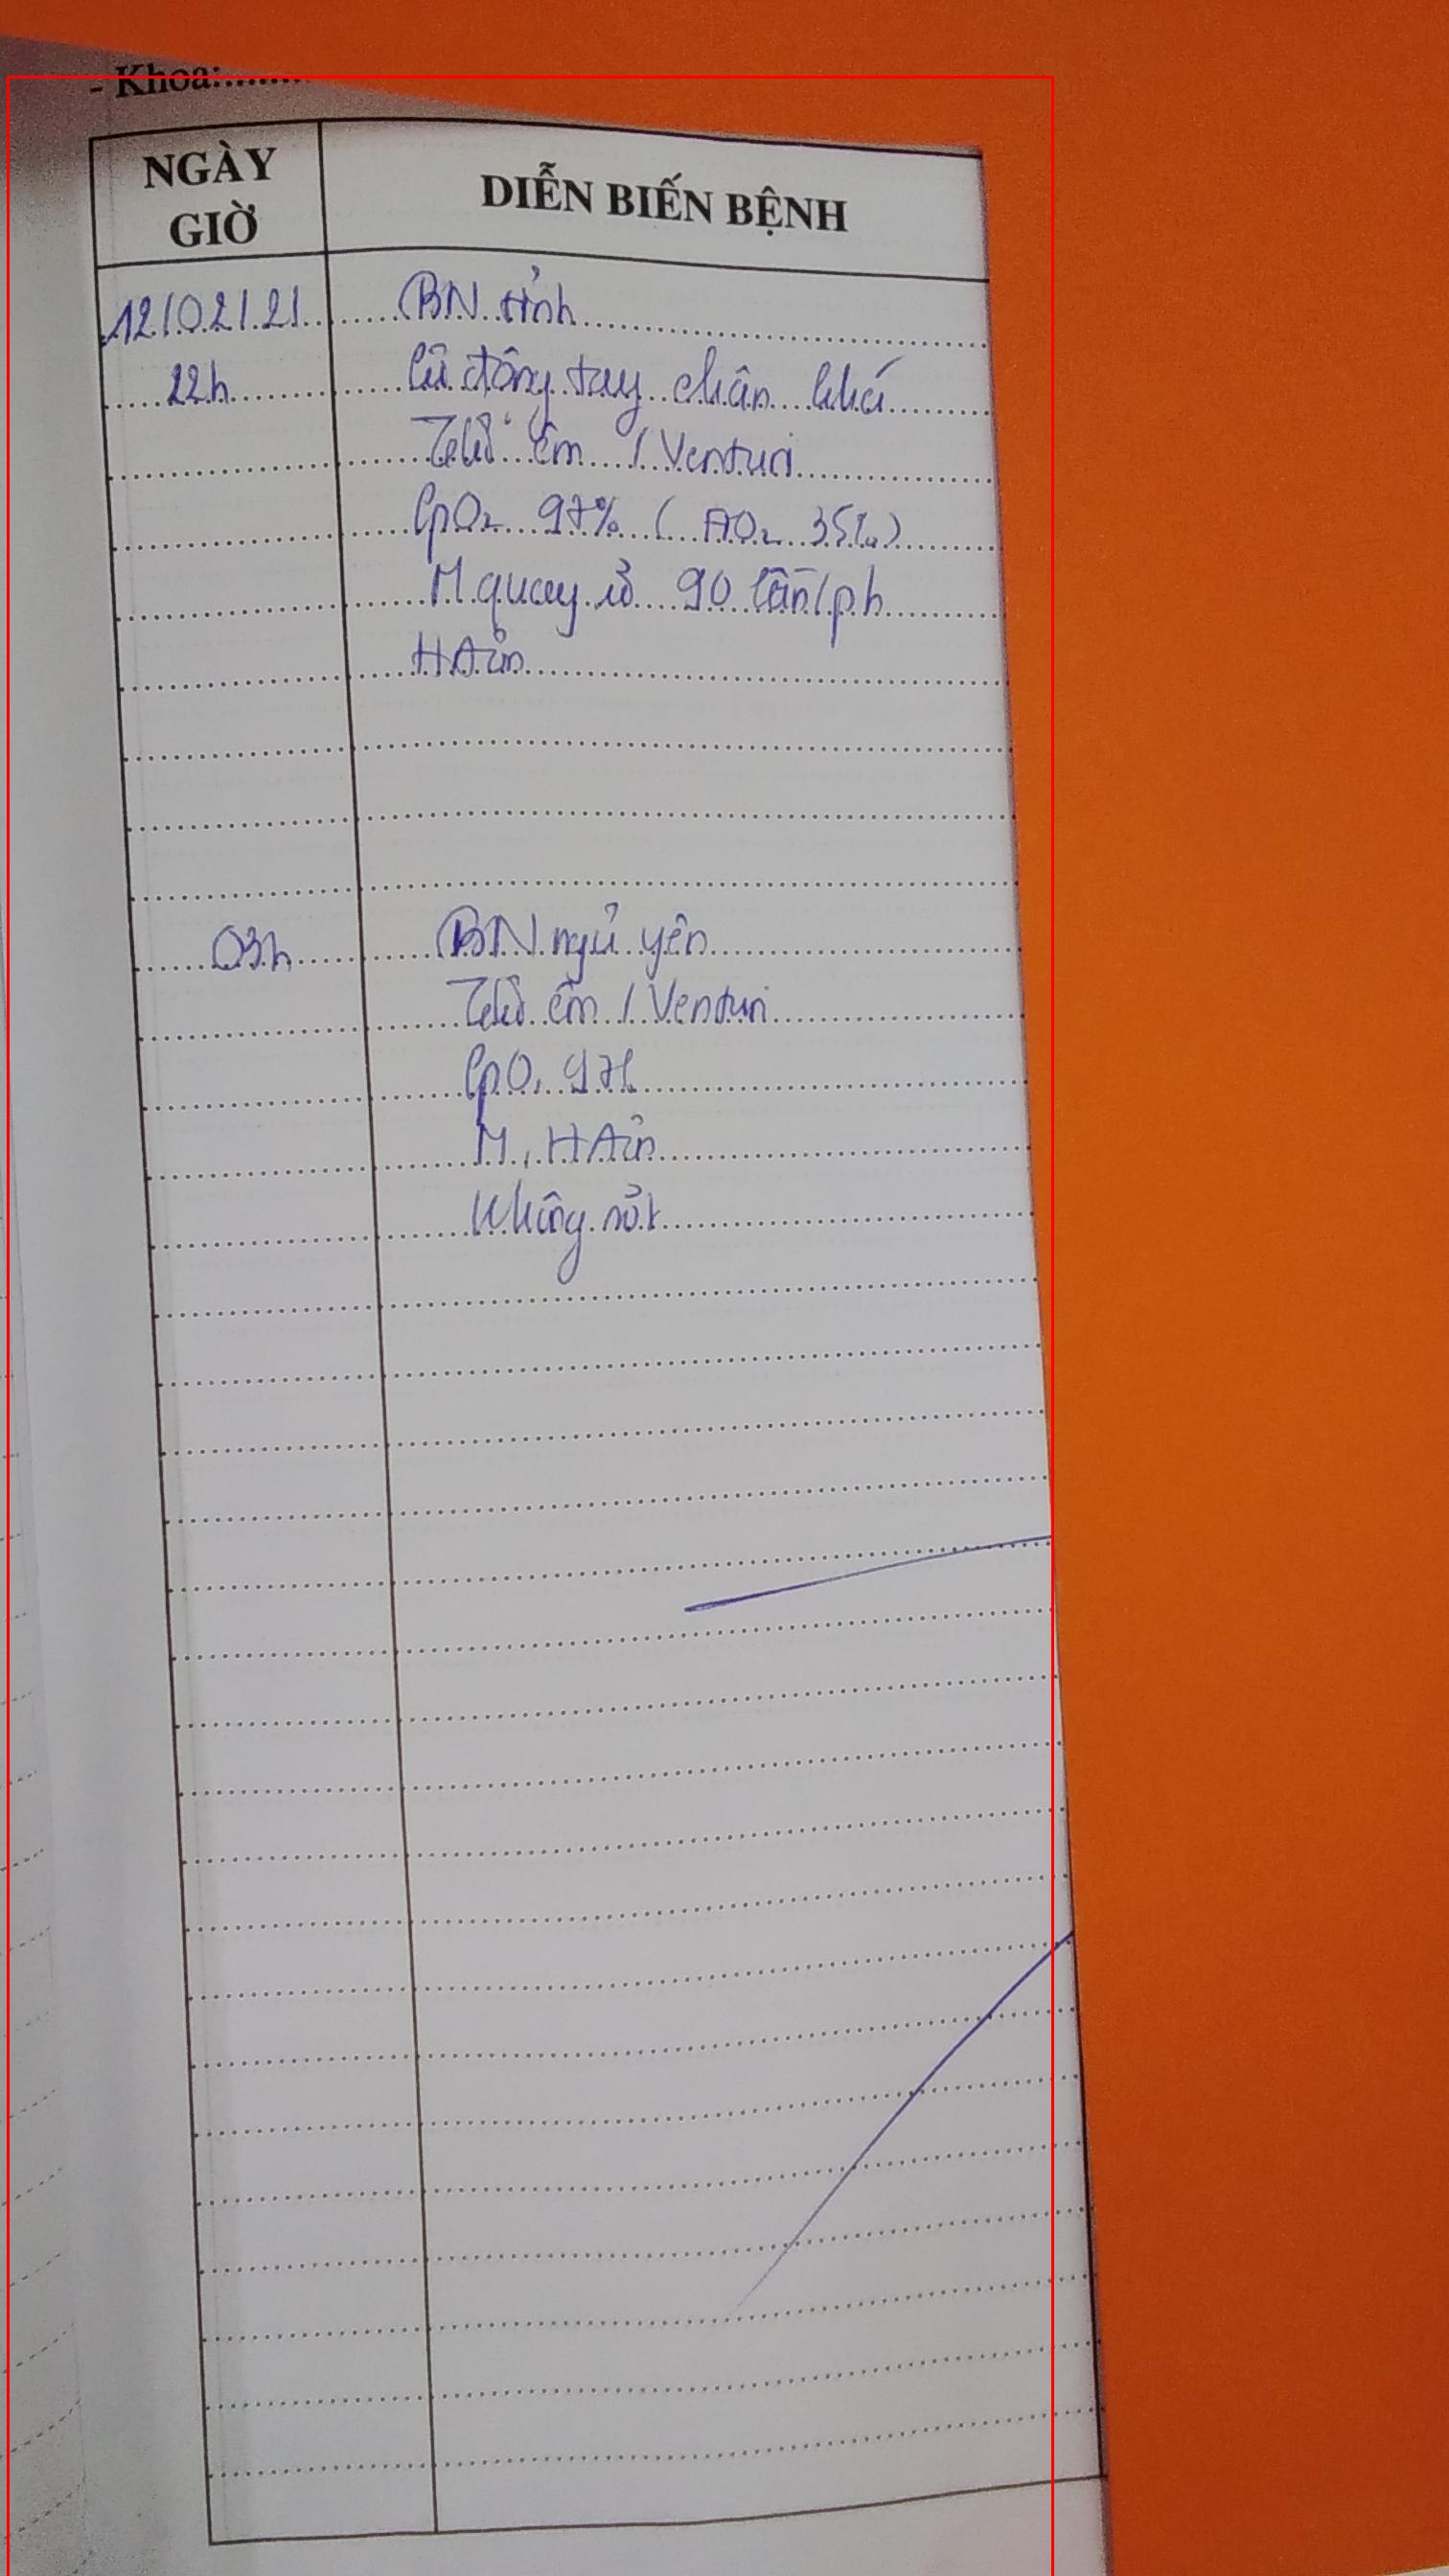 - Khoa:........
NGÀY
GIỜ
DIỄN BIẾN BỆNH
12/02/21
BN tỉnh
22h
Cử động tay chân khá
Thở êm / Venturi
SpO2 97% ( 35%)
M quay rõ 90 lần/ph
HA ổn
03h
BN ngủ yên
Thở êm / Venturi
SpO2 97%
M, HA ổn
Không sốt